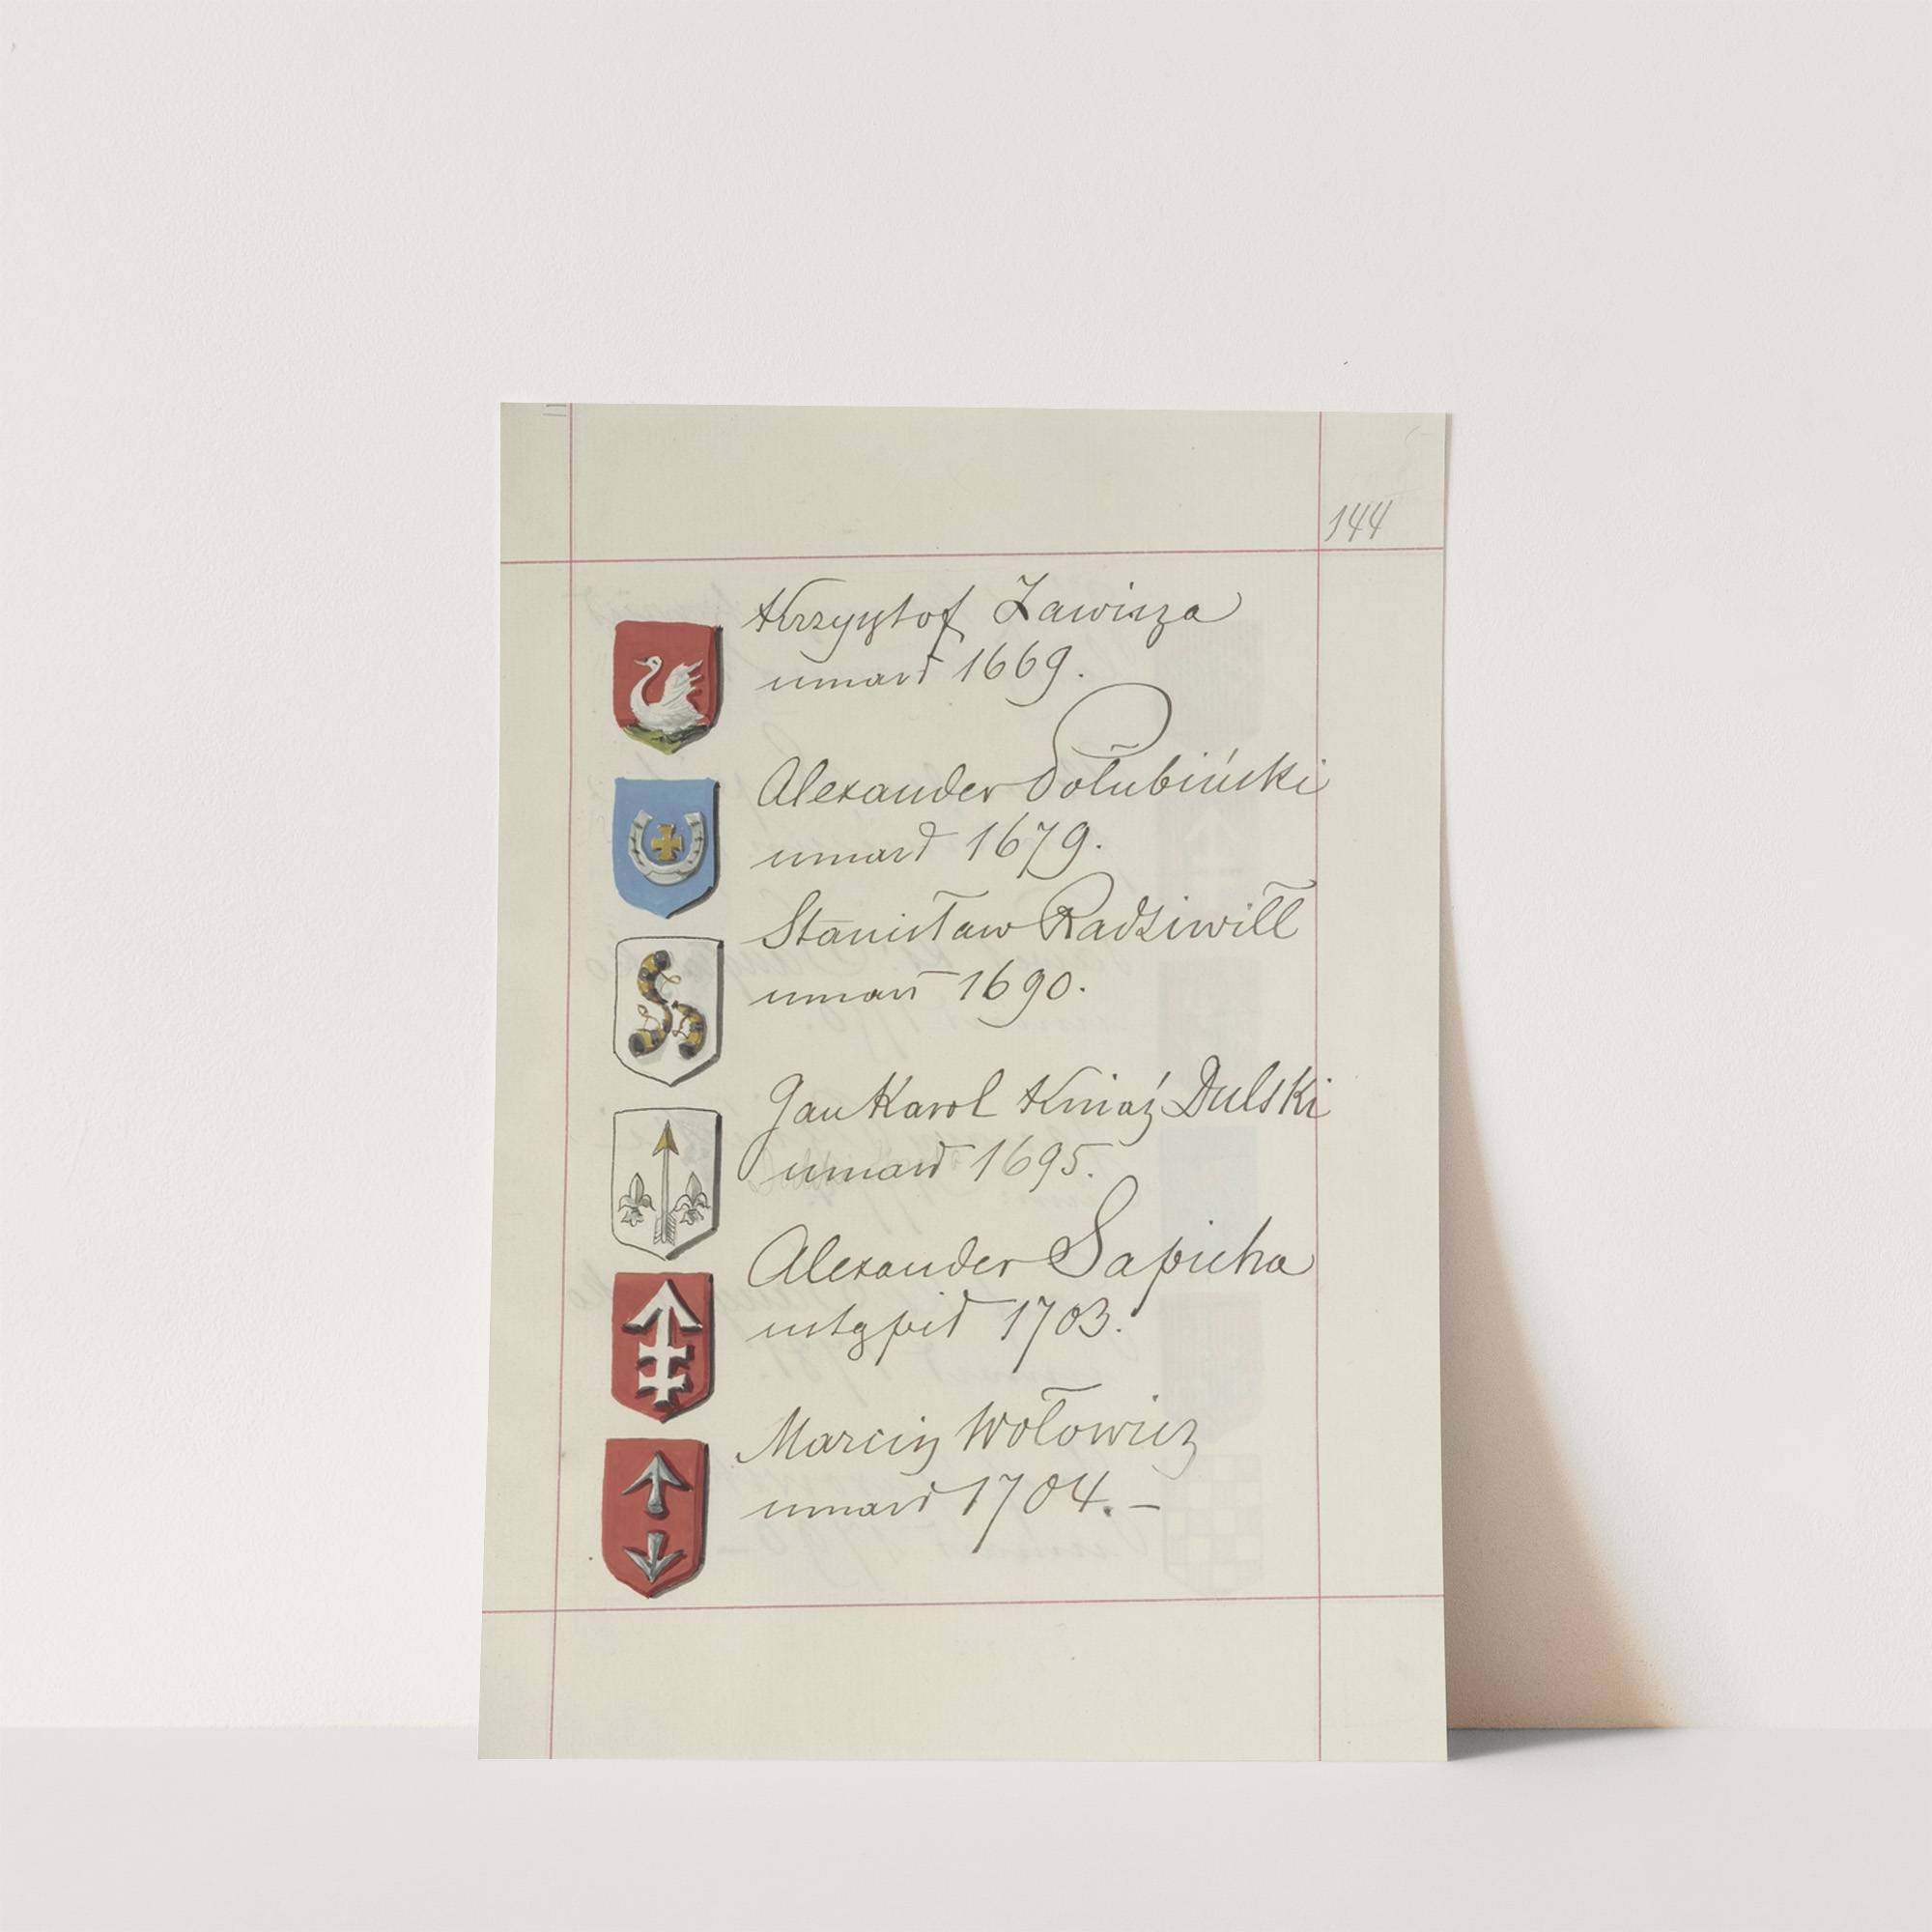 144
Krzysztof Zawisza
umarł 1669.
Alexander Połubiński
umarł 1679.
Stanisław Radziwiłł
umarł 1690.
Jan Karol Kniaź Dulski
umarł 1695.
Alexander Sapieha
ustąpił 1703.
Marcin Wołowicz
umarł 1704. –